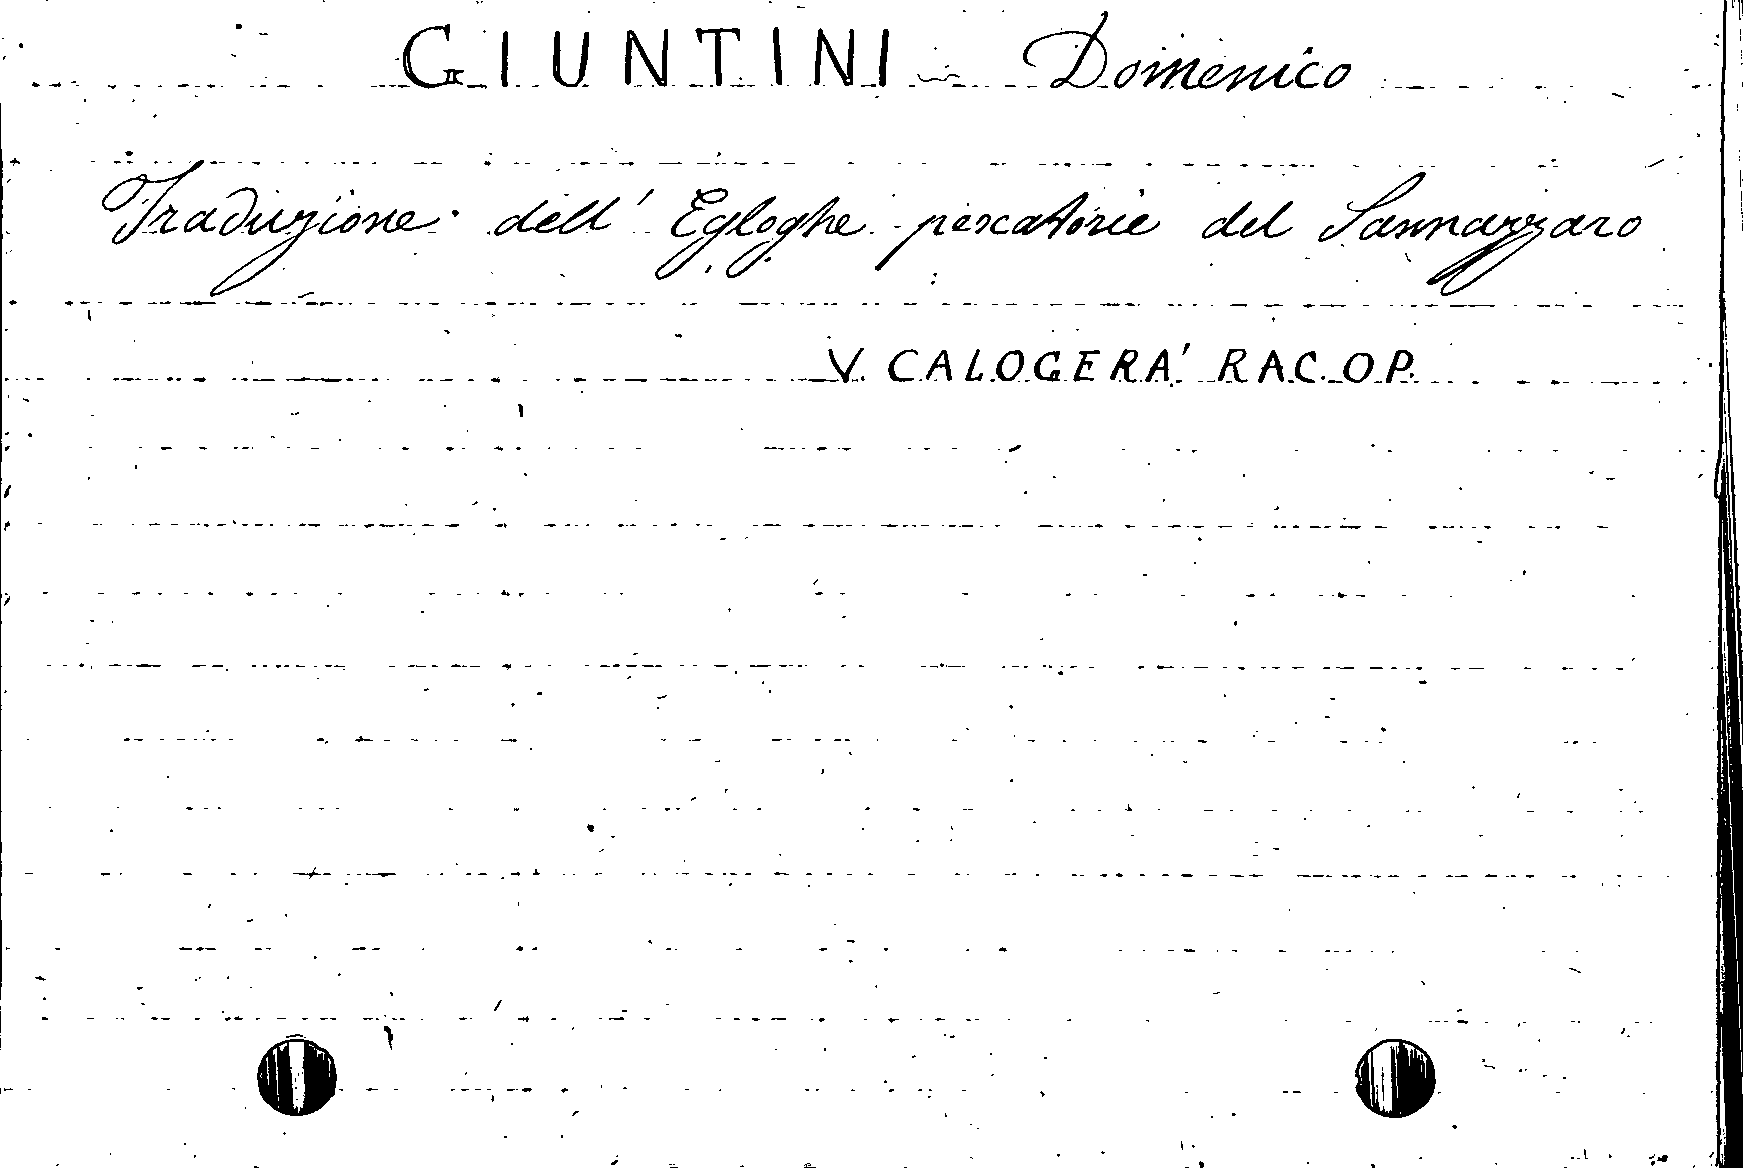 GIUNTINI Domenico
Traduzione dell' Egloghe pescatorie del Sannazzaro
V. CALOGERA' RAC. OP.